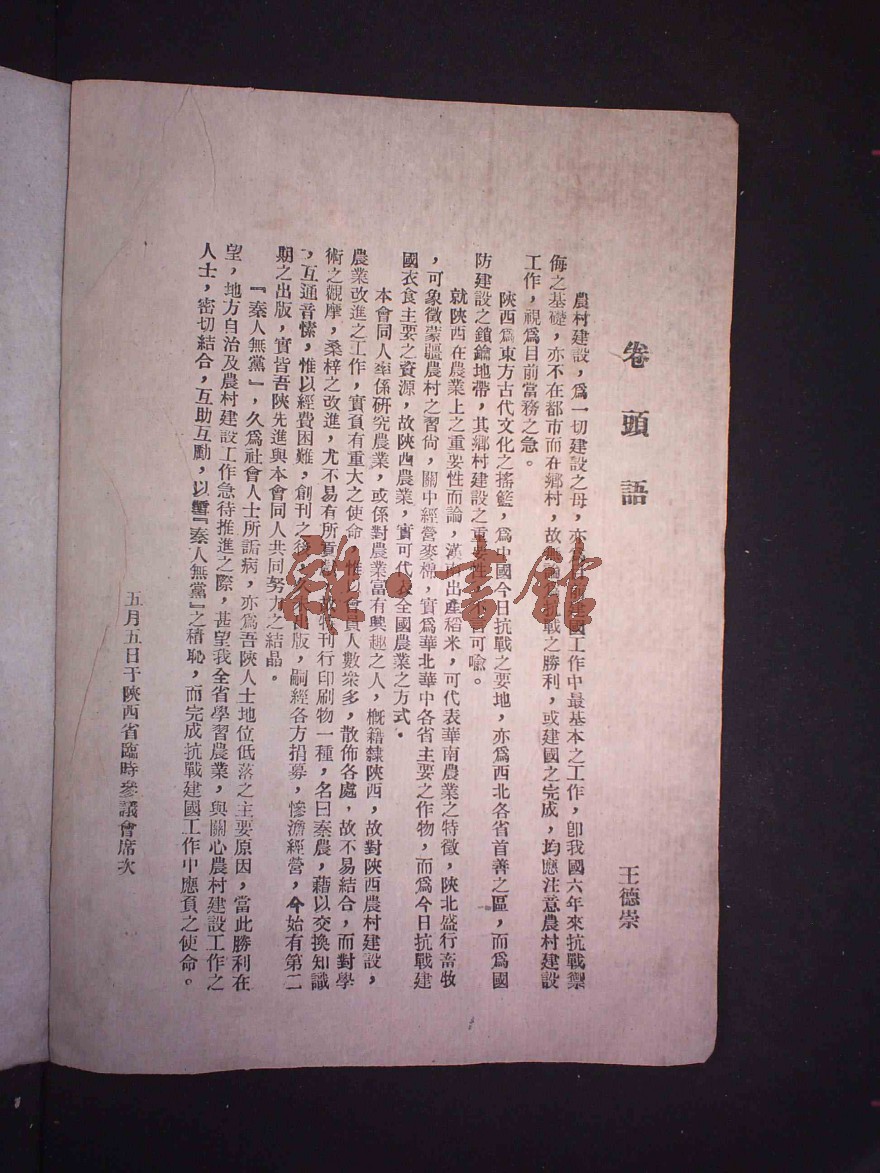 卷頭語
王德崇
農村建設，爲一切建設之母，亦爲目前建國工作中最基本之工作，卽我國六年來抗戰禦
侮之基礎，亦不在都市而在鄉村，故無論抗戰之勝利，或建國之完成，均應注意農村建設
工作，視爲目前當務之急。
陝西爲東方古代文化之搖籃，爲中國今日抗戰之要地，亦爲西北各省首善之區，而爲國
防建設之鎖鑰地帶，其鄉村建設之重要性不言可喩。
就陝西在農業上之重要性而論，漢南出產稻米，可代表華南農業之特徵，陝北盛行畜牧
，可象徵蒙疆農村之習尙，關中經營麥棉，實爲華北華中各省主要之作物，而爲今日抗戰建
國衣食主要之資源，故陝西農業，實可代表全國農業之方式．
本會同人率係研究農業，或係對農業富有興趣之人，槪籍隸陝西，故對陝西農村建設，
農業改進之工作，實負有重大之使命，惟以會員人數衆多，散佈各處，故不易結合，而對學
術之觀摩，桑梓之改進，尤不易有所貢　特刊行印刷物一種，名曰秦農，藉以交換知識
，互通音愫，惟以經費困難，創刊之後，久未出版，嗣經各方捐募，慘澹經營，今始有第二
期之出版，實皆吾陝先進與本會同人共同努力之結晶。
『秦人無黨』，久爲社會人士所詬病，亦爲吾陝人士地位低落之主要原因，當此勝利在
望，地方自治及農村建設工作急待推進之際，甚望我全省學習農業，與關心農村建設工作之
人士，密切結合，互助互勵，以雪『秦人無黨』之積恥，而完成抗戰建國工作中應負之使命。
五月五日于陝西省臨時參議會席次
雜·書館